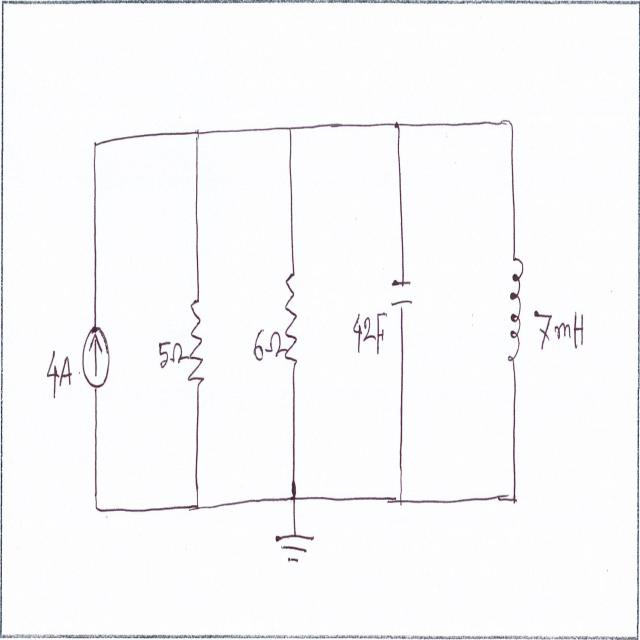 4A
5Ω
6Ω
42F
7mH